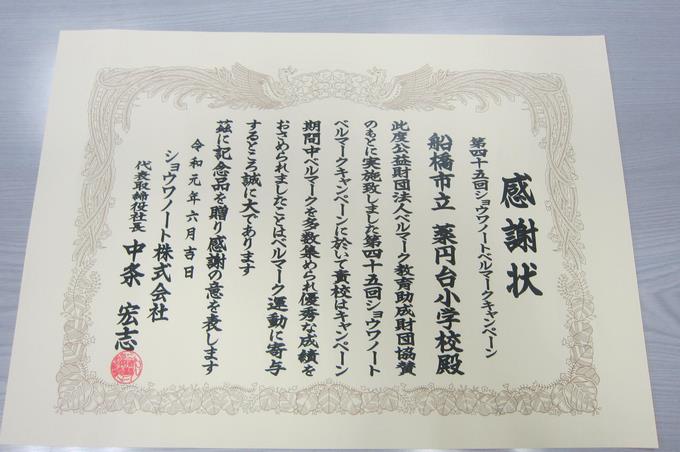 感謝状
第四十五回ショウワノートベルマークキャンペーン
船橋市立 薬円台小学校殿
此度公益財団法人ベルマーク教育助成財団協賛
のもとに実施致しました第四十五回ショウワノート
ベルマークキャンペーンに於いて貴校はキャンペーン
期間中ベルマークを多数集められ優秀な成績を
おさめられましたことはベルマーク運動に寄与
するところ誠に大であります
茲に記念品を贈り感謝の意を表します
令和元年六月吉日
ショウワノート株式会社
代表取締役社長 中条 宏志